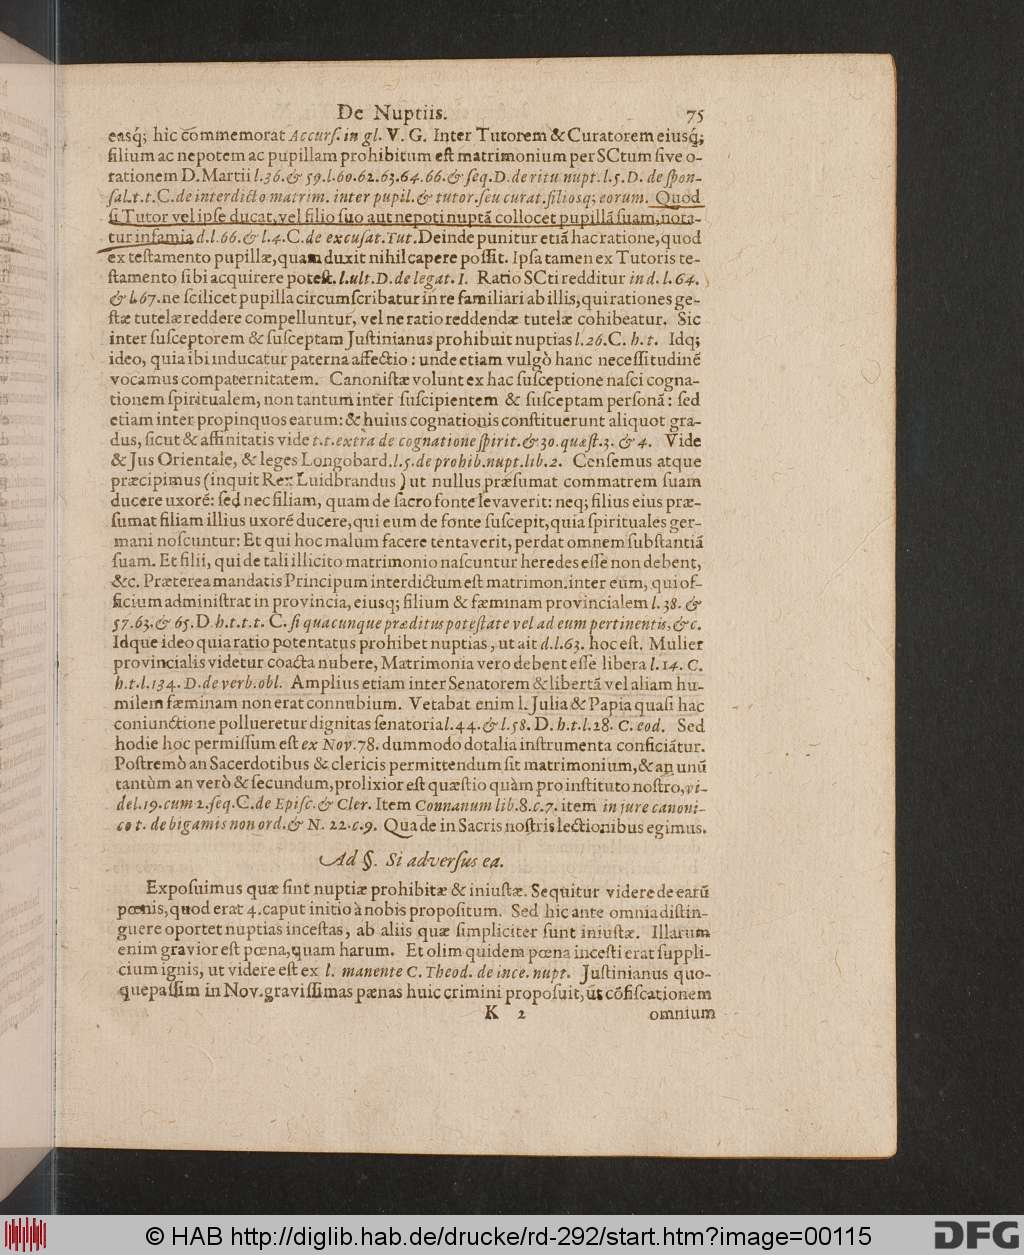 De Nuptiis. 75
easq́; hic cōmemorat Accurſ. in gl. V. G. Inter Tutorem & Curatorem eiusq́;
filium ac nepotem ac pupillam prohibitum eſt matrimonium per SCtum ſive o-
rationem D. Martii l.36.& 59.l.60.62.63.64.66.& ſeq.D.de ritu nupt.l.5.D. de ſpon-
ſal.t.t.C.de interdicto matrim. inter pupil.& tutor.ſeu curat.filiosq; eorum. Quod
ſi Tutor vel ipſe ducat,vel filio ſuo aut nepoti nuptā collocet pupillā ſuam,nota-
tur infamia d.l.66.& l.4.C.de excuſat.Tut.Deinde punitur etiā hac ratione,quod
ex teſtamento pupillæ,quam duxit nihil capere poſſit. Ipſa tamen ex Tutoris te-
ſtamento ſibi acquirere poteſt.l.ult.D.de legat.I. Ratio SCti redditur in d.l.64.
& l.67.ne ſcilicet pupilla circumſcribatur in re familiari ab illis,qui rationes ge-
ſtæ tutelæ reddere compelluntur, vel ne ratio reddendæ tutelæ cohibeatur. Sic
inter ſuſceptorem & ſuſceptam Juſtinianus prohibuit nuptias l.26.C. h.t. Idq;
ideo, quia ibi inducatur paterna affectio : unde etiam vulgò hanc neceſſitudinē
vocamus compaternitatem. Canoniſtæ volunt ex hac ſuſceptione naſci cogna-
tionem ſpiritualem, non tantum inter ſuſcipientem & ſuſceptam perſonā: ſed
etiam inter propinquos earum: & huius cognationis conſtituerunt aliquot gra-
dus, ſicut & affinitatis vide t.t.extra de cognatione ſpirit.& 30.quæſt.3. & 4. Vide
& Jus Orientale, & leges Longobard.l.5.de prohib.nupt.lib.2. Cenſemus atque
præcipimus (inquit Rex Luidbrandus) ut nullus præſumat commatrem ſuam
ducere uxorē: ſed nec filiam, quam de ſacro fonte levaverit: neq; filius eius præ-
ſumat filiam illius uxorē ducere,qui eum de fonte ſuſcepit,quia ſpirituales ger-
mani noſcuntur: Et qui hoc malum facere tentaverit, perdat omnem ſubſtantiā
ſuam. Et filii, qui de tali illicito matrimonio naſcuntur heredes eſſe non debent,
&c. Præterea mandatis Principum interdictum eſt matrimon.inter eum, qui of-
ficium adminiſtrat in provincia, eiusq; filium & fæminam provincialem l.38. &
57.63.& 65.D.h.t.t.t. C.ſi quacunque præditus poteſtate vel ad eum pertinentis,&c.
Idque ideo quia ratio potentatus prohibet nuptias , ut ait d.l.63. hoc eſt. Mulier
provincialis videtur coacta nubere, Matrimonia vero debent eſſe libera l.14. C.
h.t.l.134. D.de verb.obl. Amplius etiam inter Senatorem & libertā vel aliam hu-
milem fæminam non erat connubium. Vetabat enim l. Julia & Papia quaſi hac
coniunctione pollueretur dignitas ſenatoria l.44.& l.58. D.h.t.l.28. C. eod. Sed
hodie hoc permiſſum eſt ex Nov.78. dummodo dotalia inſtrumenta conficiātur.
Poſtremò an Sacerdotibus & clericis permittendum ſit matrimonium,& an unū
tantùm an verò & ſecundum,prolixior eſt quæſtio quàm pro inſtituto noſtro,vi-
de l.19.cum 2.ſeq.C.de Epiſc.& Cler. Item Connanum lib.8.c.7. item in jure canoni-
co t. de bigamis non ord.& N. 22.c.9. Qua de in Sacris noſtris lectionibus egimus.
Ad §. Si adverſus ea.
Expoſuimus quæ ſint nuptiæ prohibitæ & iniuſtæ. Sequitur videre de earū
pœnis,quod erat 4.caput initio à nobis propoſitum. Sed hic ante omnia diſtin-
guere oportet nuptias inceſtas, ab aliis quæ ſimpliciter ſunt iniuſtæ. Illarum
enim gravior eſt pœna,quam harum. Et olim quidem pœna inceſti erat ſuppli-
cium ignis, ut videre eſt ex l. manente C. Theod. de ince. nupt. Juſtinianus quo-
que paſſim in Nov.graviſſimas pænas huic crimini propoſuit,ut cōfiſcationem
K 2 omnium
© HAB http://diglib.hab.de/drucke/rd-292/start.htm?image=00115 DFG